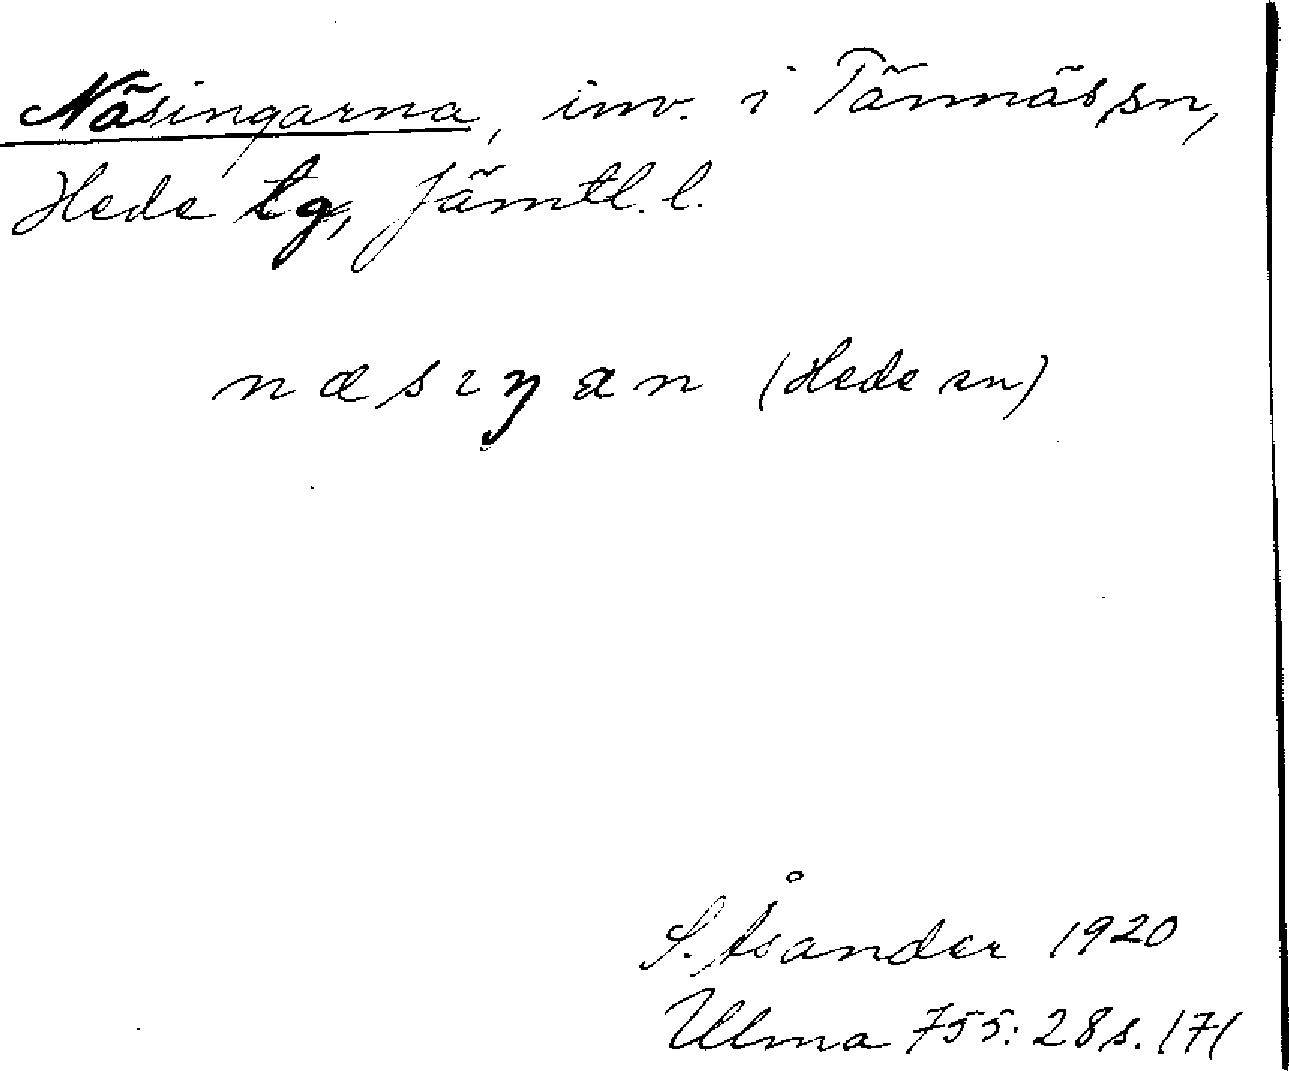 Näsingarna, inv. i Tännäs sn,
Hede tg, Jämtl. l.
næsıŋan (Hede sn)
S. Åsander 1920
Ulma 755: 28 s. 171